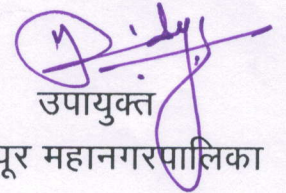 उपायुक्त
पूर महानगरपालिका